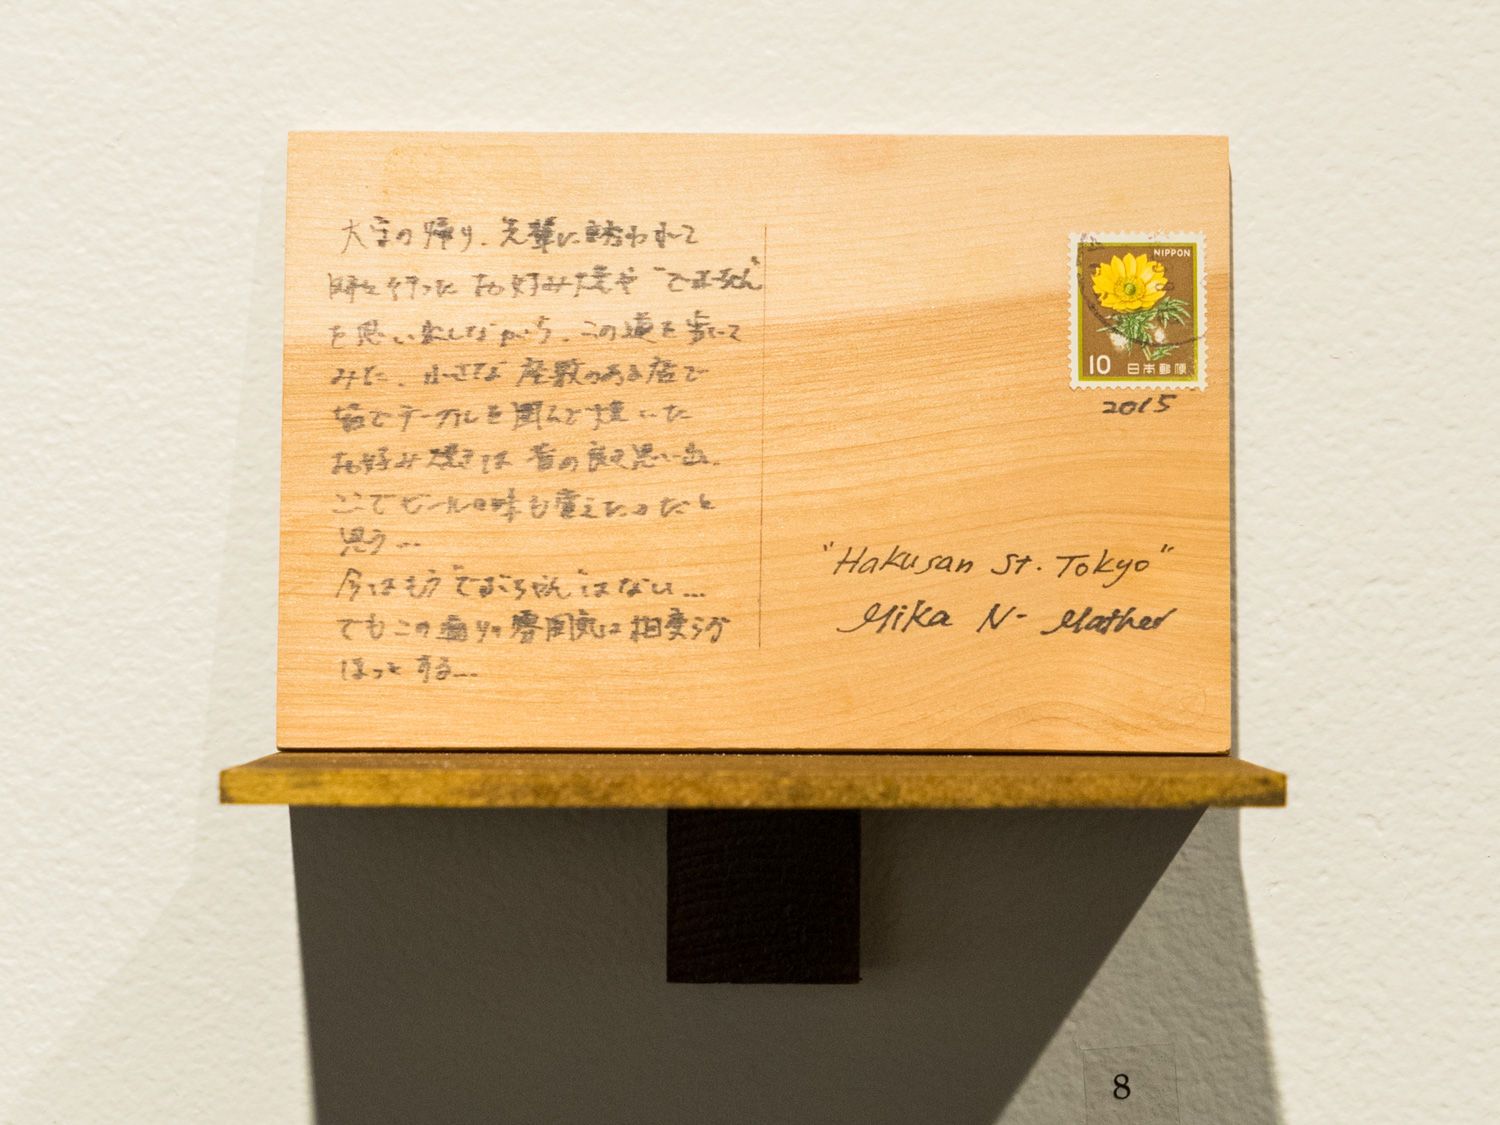 大学の帰り、先輩に誘われて
時々行ったお好み焼や"でぶちゃん"
を思い出しながら、この道を歩いて
みた、小さな座敷のある店で
皆でテーブルを囲んで焼いた
お好み焼きは昔の良き思い出。
ここでビールの味も覚えたのだと
思う...
今はもう"でぶちゃん"はない...
でもこの通りの雰囲気は相変らず
ほっとする...
NIPPON
10 日本郵便
2015
"Hakusan St. Tokyo"
Mika N- Mather
8